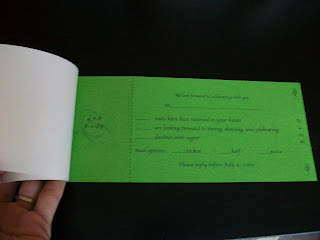 We look forward to celebrating with you
M
seats have been reserved in your honor
are looking forward to dining, dancing, and celebrating
decline with regret
Meal options: chicken beef pasta
Please reply before July 4, 2009
RSVP